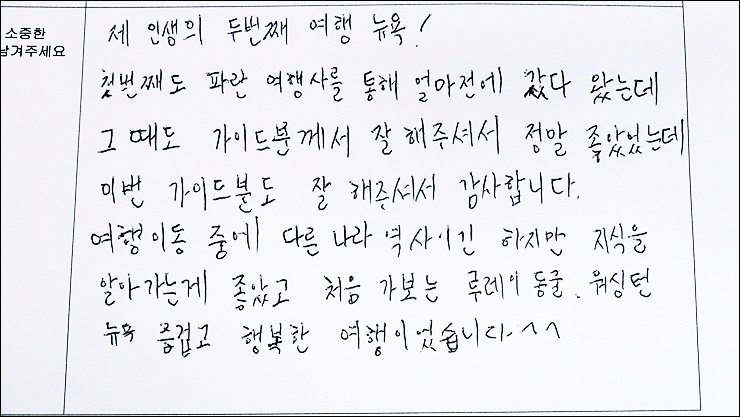 소중한
남겨주세요
제 인생의 두번째 여행 뉴욕!
첫번째도 파란 여행사를 통해 얼마전에 갔다 왔는데
그 때도 가이드분께서 잘 해주셔서 정말 좋았었는데
이번 가이드분도 잘 해주셔서 감사합니다.
여행이동 중에 다른나라 역사이긴 하지만 지식을
알아가는게 좋았고 처음 가보는 루레이 동굴. 워싱턴
뉴욕 즐겁고 행복한 여행이었습니다~^^